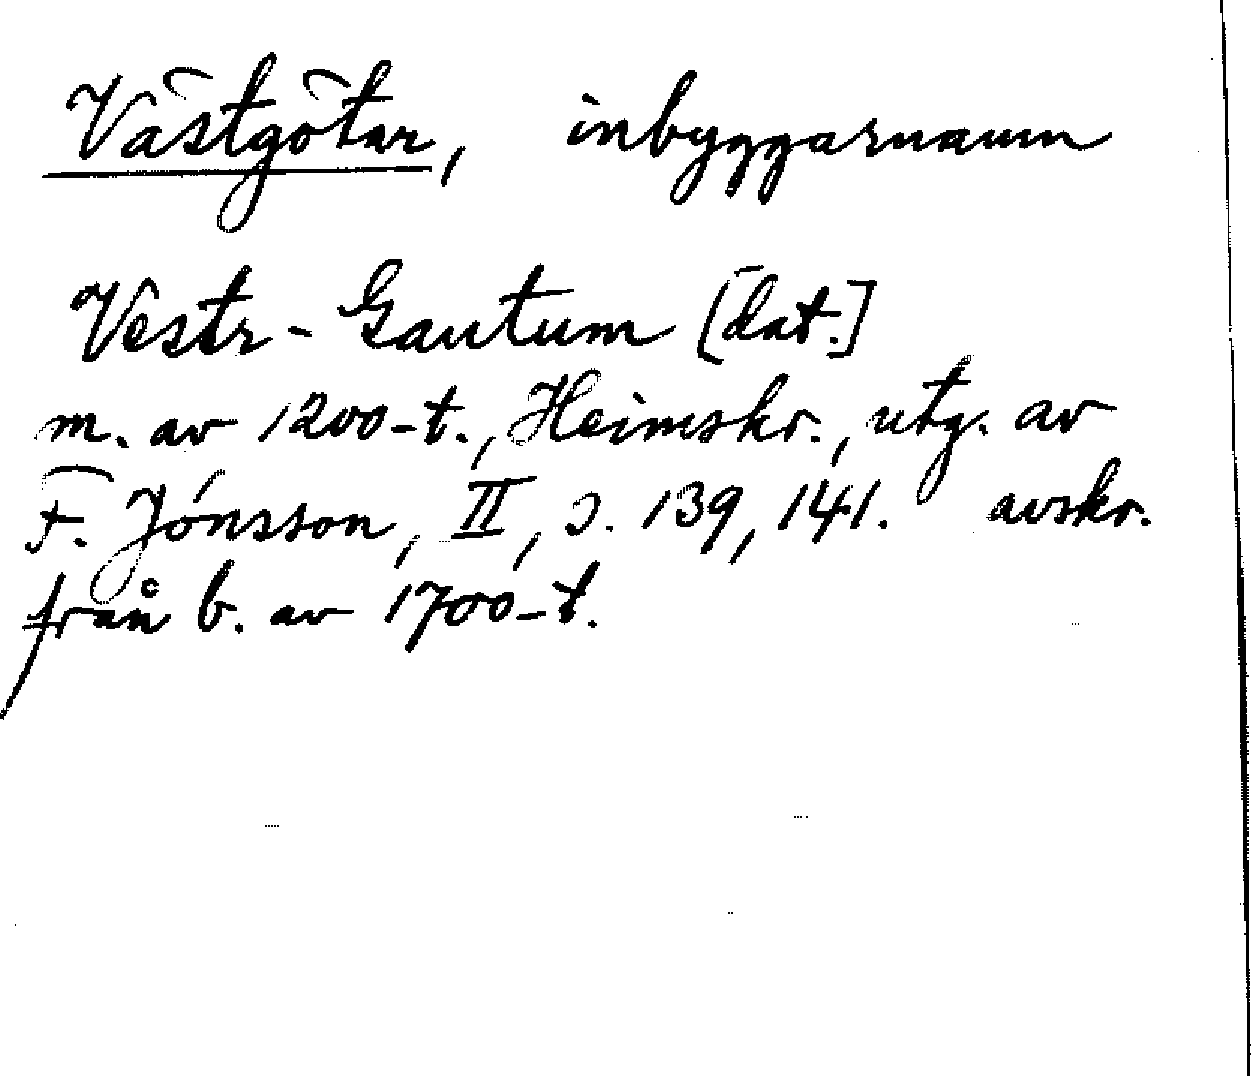 Västgötar, inbyggarnamn
Vestr-Gautum [dat.]
m. av 1200-t., Heimskr., utg. av
F. Jónsson, II, s. 139, 141. avskr.
från b. av 1700-t.